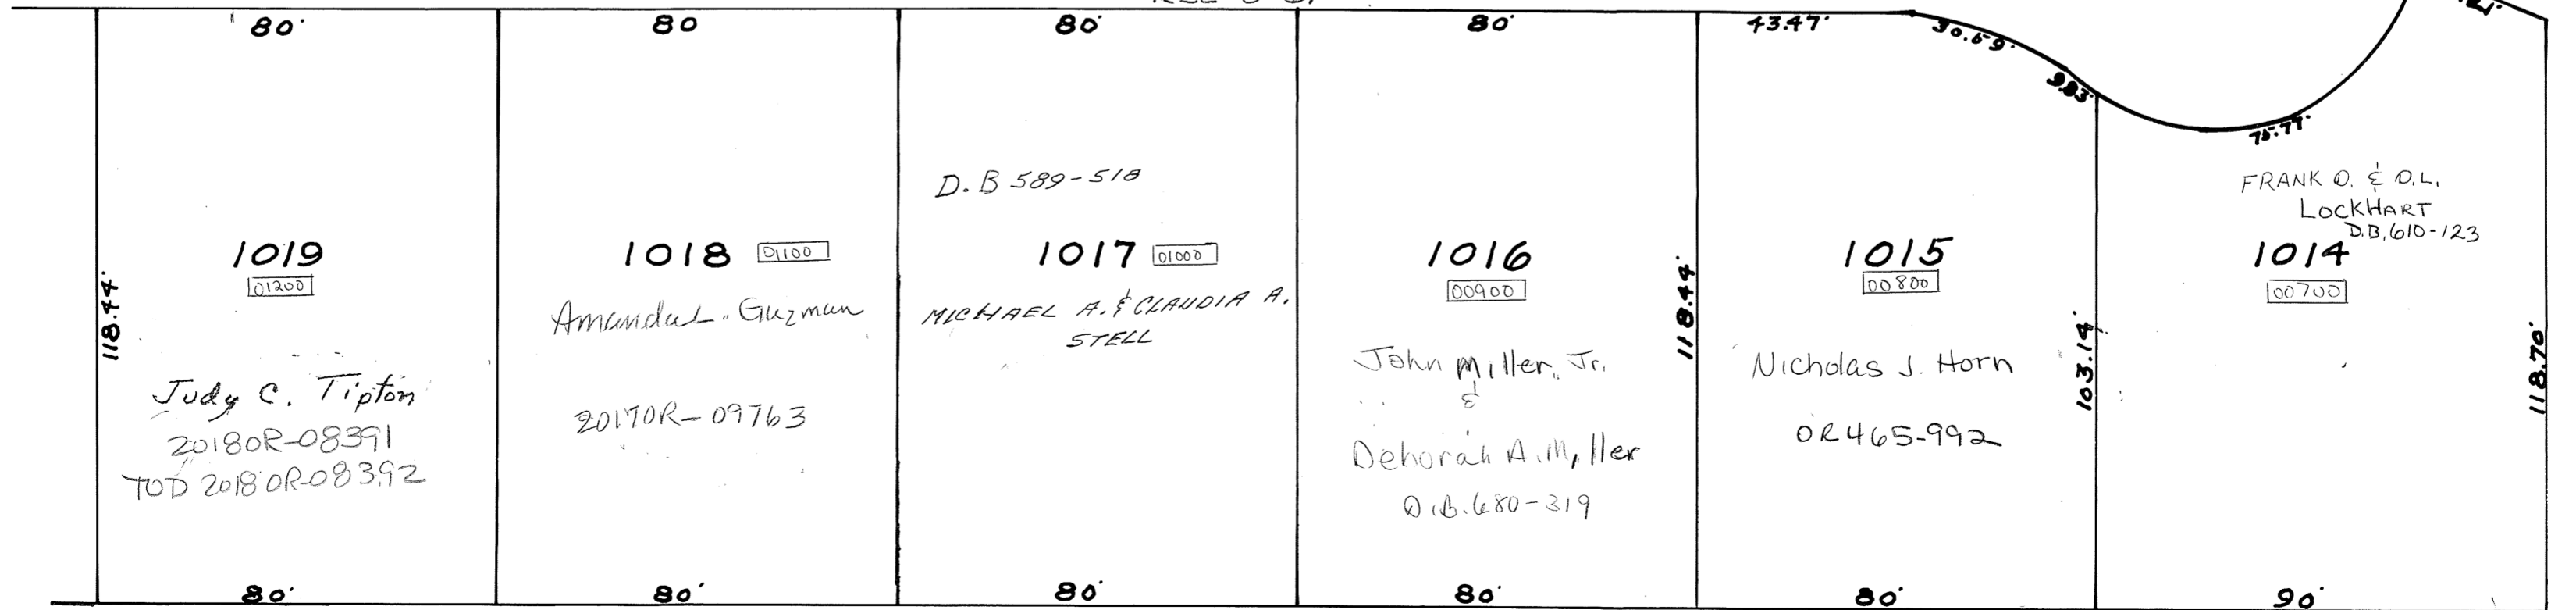 80'
80
80'
80'
43.47'
30.59'
9.83'
75.77'
118.44'
1019
01200
Judy C. Tipton
2018OR-08391
TOD 2018OR-08392
80'
1018 01100
Amanda L. Guzman
2017OR-09763
80'
D.B 589-518
1017 01000
MICHAEL A. & CLAUDIA A.
STELL
80'
1016
00900
John Miller, Jr.
&
Deborah A. Miller
D.B. 680-319
80'
118.44'
1015
00800
Nicholas J. Horn
OR465-992
80'
103.14'
FRANK D. & D.L.
LOCKHART
D.B. 610-123
1014
00700
90'
118.70'